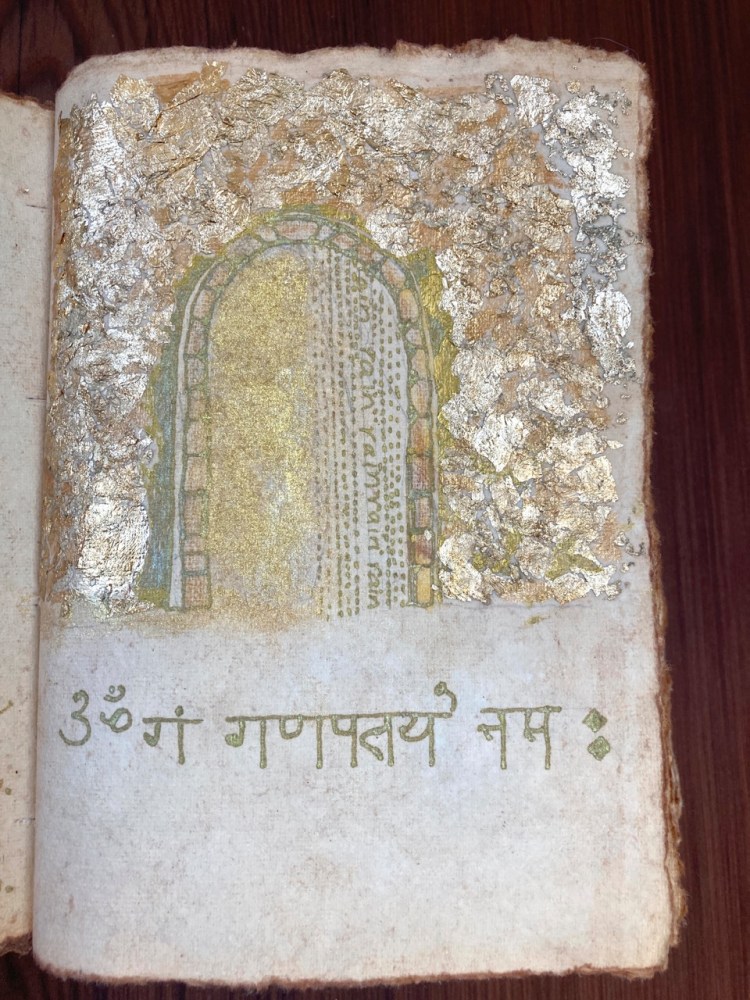 rain rain rain rain
ॐ गं गणपतये नमः